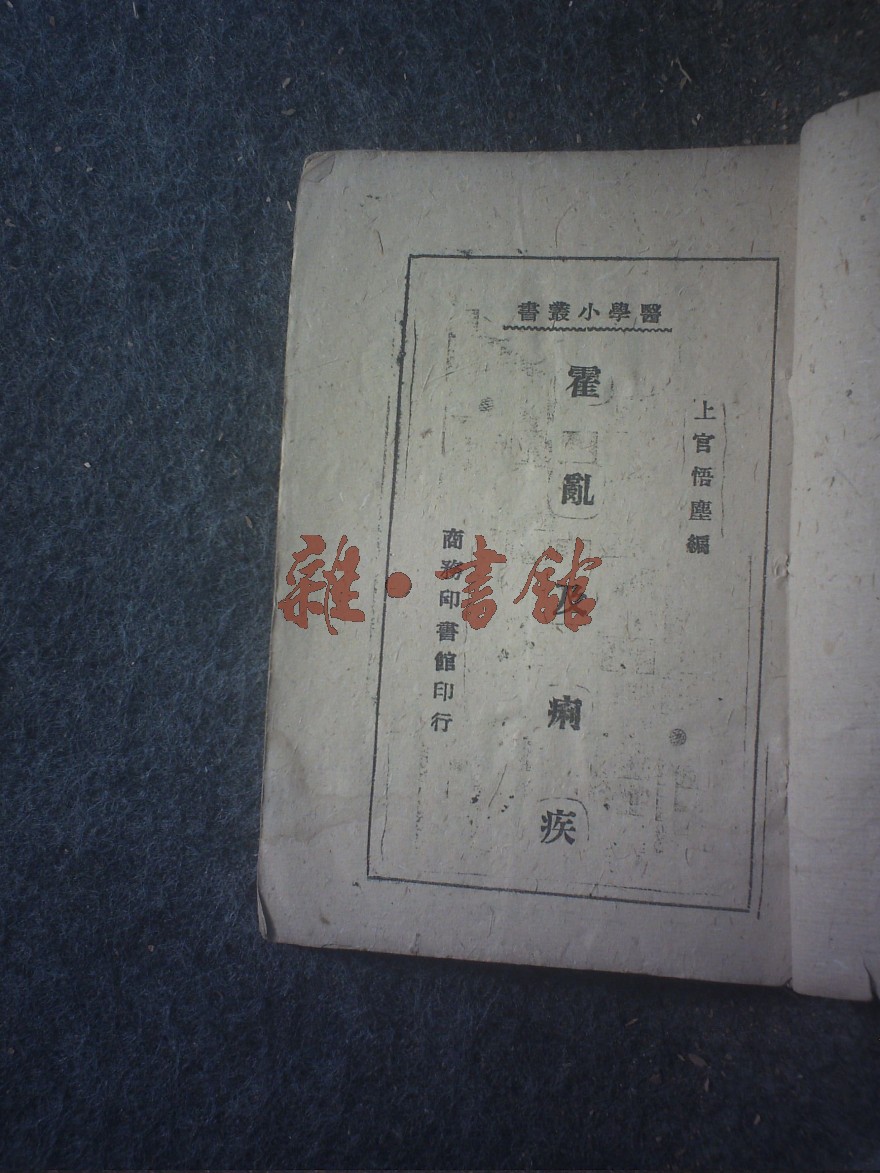 醫學小叢書
上官悟塵編
霍亂及痢疾
商務印書館印行
雜·書館